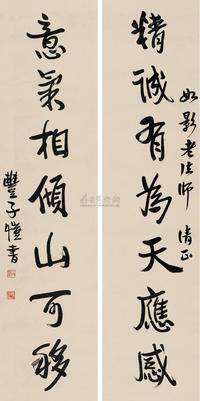 如影老法师 清正
精诚有為天應感
意氣相傾山可移
豐子愷書